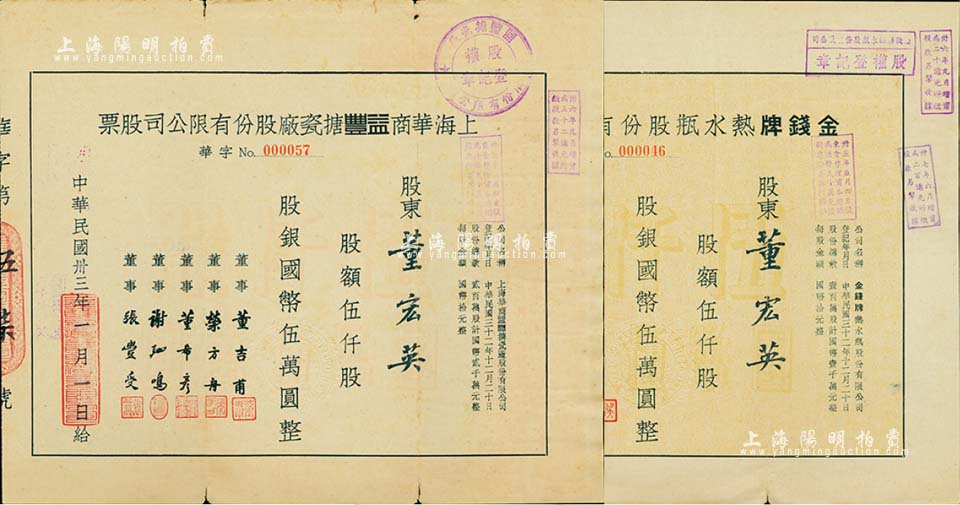 上海華商益豐搪瓷廠股份有限公司股票
華字 No. 000057
公司名稱 上海華商益豐搪瓷廠股份有限公司
登記年月日 中華民國三十二年十二月二十日
股份總數 貳百萬股計國幣貳千萬元整
每股金額 國幣拾元整
股東 董宏英
股額伍仟股
股銀國幣伍萬圓整
董事 董吉甫
董事 榮方舟
董事 董希彥
董事 謝
董事 張豐受
中華民國卅三年一月一日給
華字第
伍
號
股權登記章
金錢牌熱水瓶股份有
No. 000046
公司名稱 金錢牌熱水瓶股份有限公司
登記年月日 中華民國三十二年十二月二十日
股份總數 壹百萬股計國幣壹千萬元整
每股金額 國幣拾元整
股東 董宏英
股額伍仟股
股銀國幣伍萬圓整
股權登記章
上海陽明拍賣
www.yangmingauction.com
上海陽明拍賣
www.yangmingauction.com
上海陽明拍賣
www.yangmingauction.com
上海陽明拍賣
www.yangmingauction.com